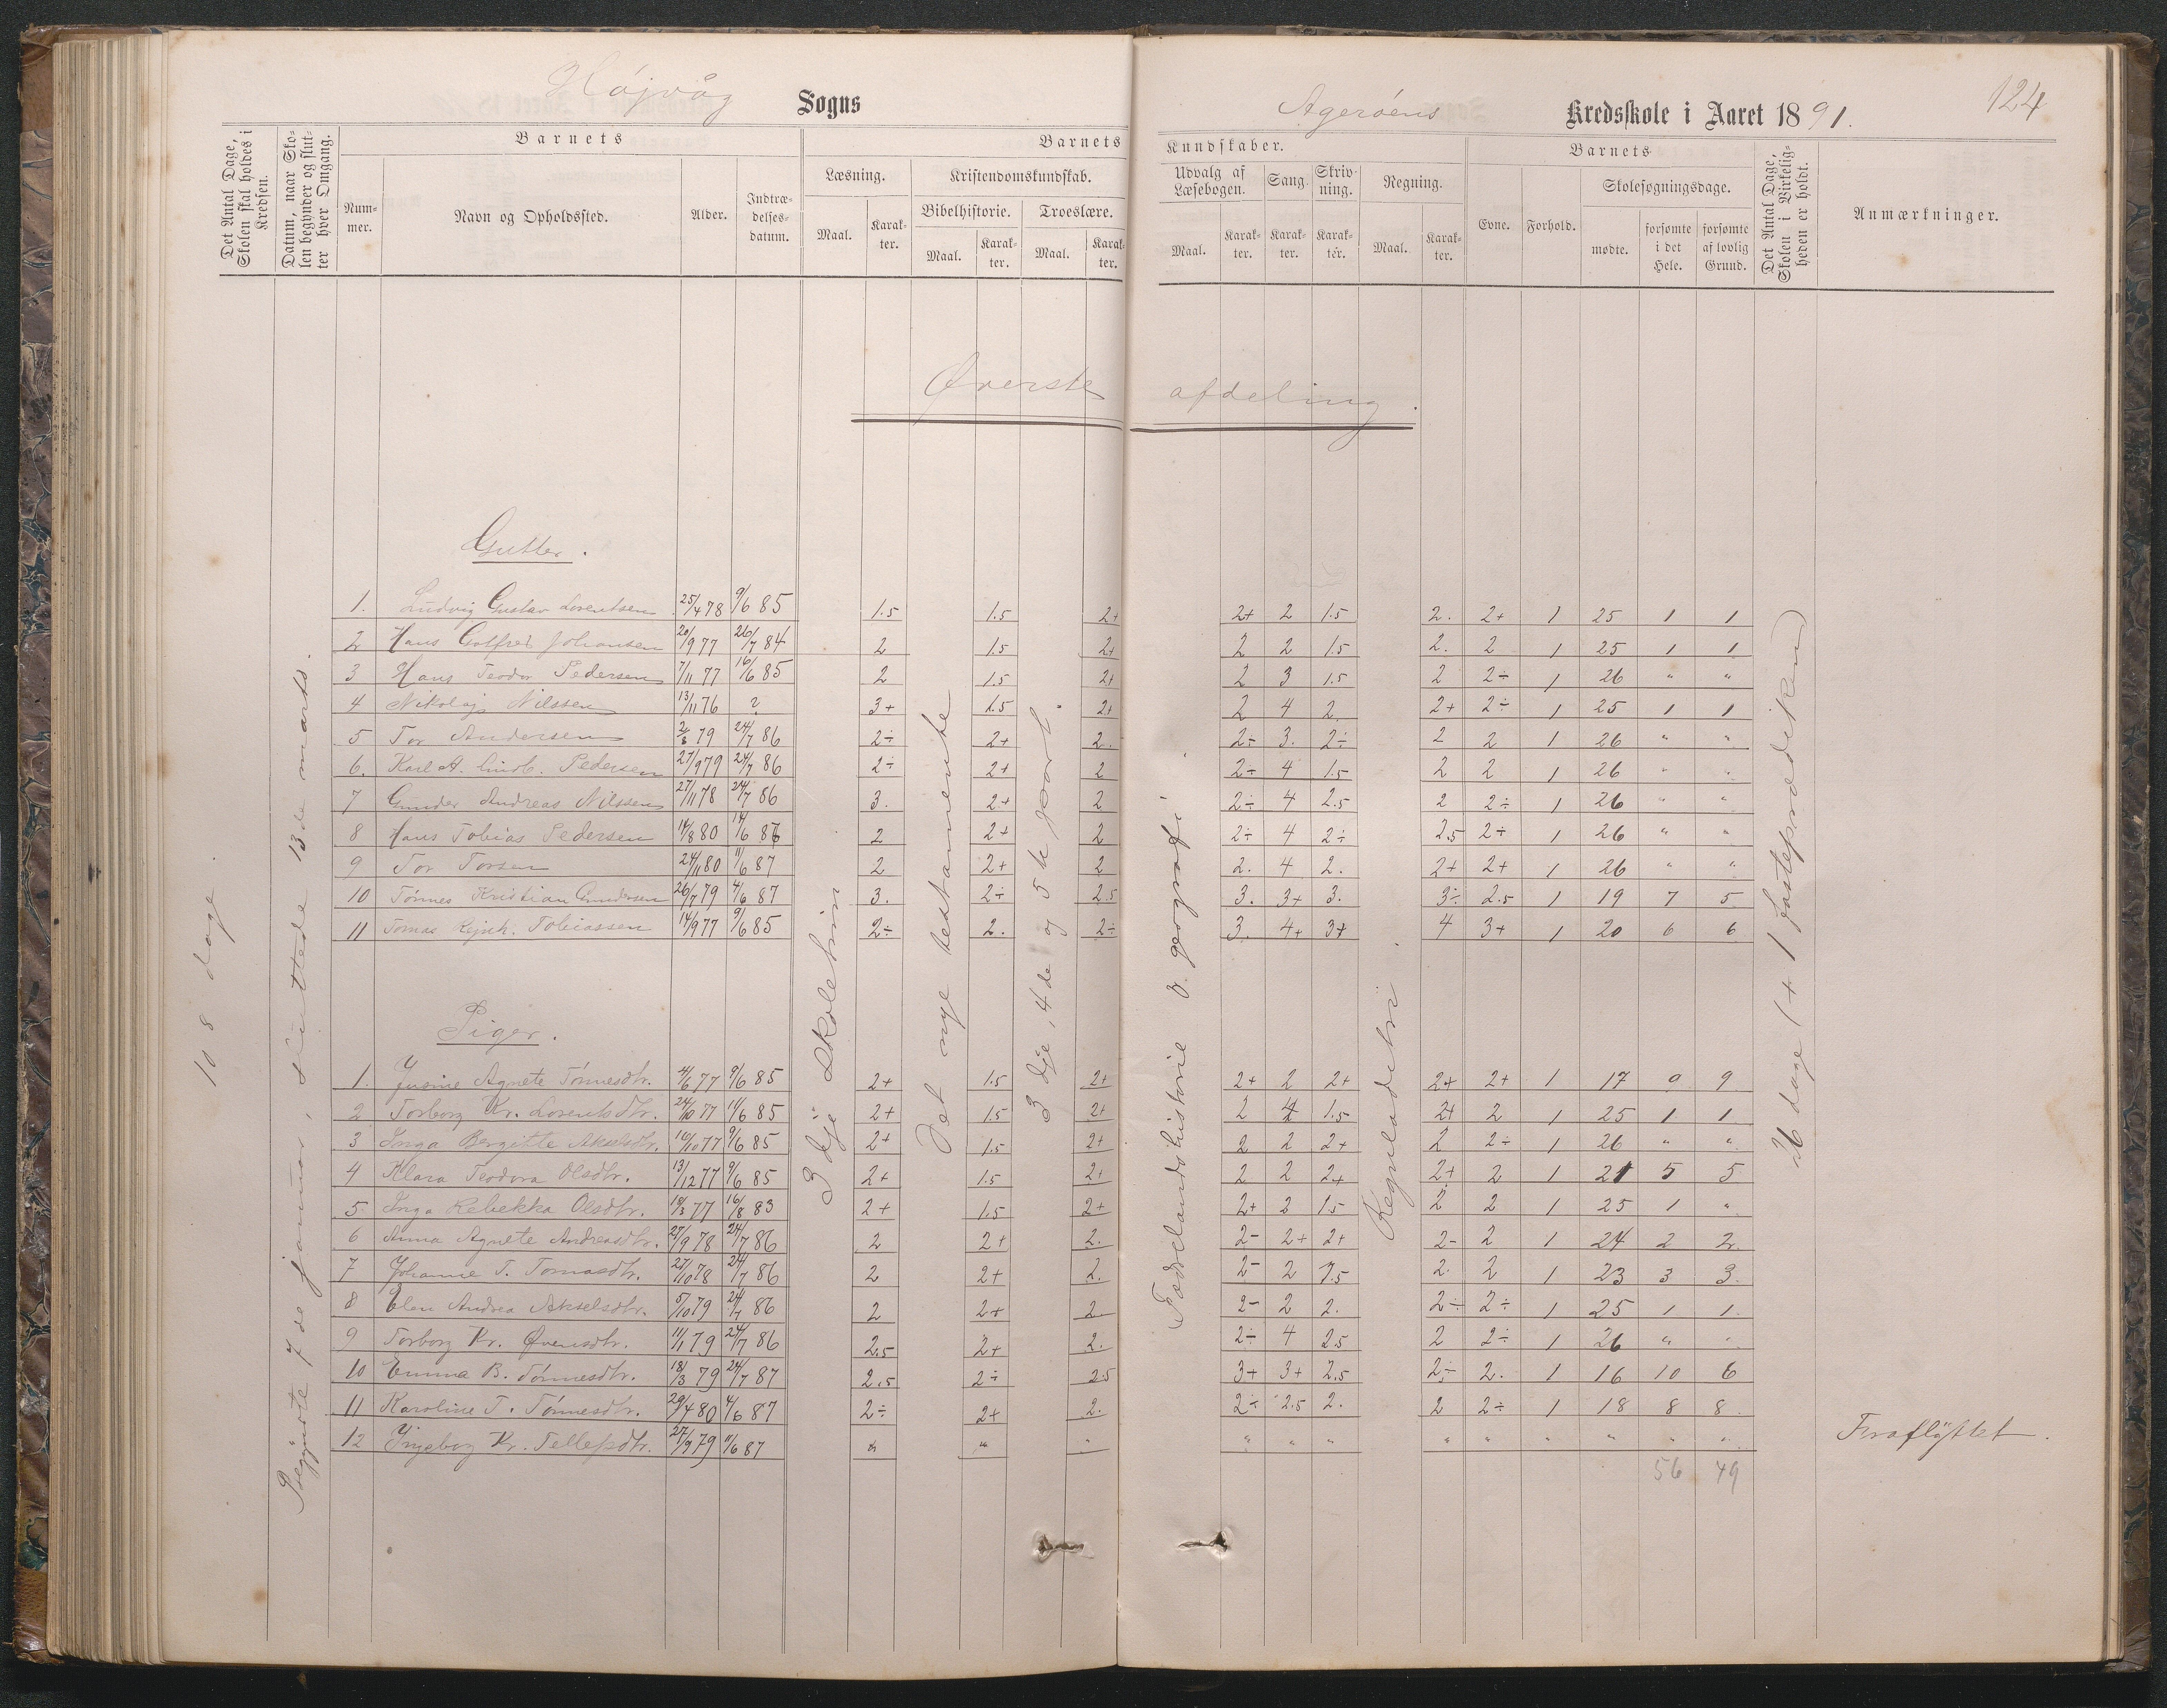 Højvåg Sogns
Agerøens Kredsskole i Aaret 1891.
124
Det Antal Dage, Skolen skal holdes i Kredsen.
Datum, naar Skolen begynder og slutter hver Omgang.
Barnets
Nummer.
Navn og Opholdssted.
Alder.
Indtrædelsesdatum.
Barnets
Læsning.
Maal.
Karakter.
Kristendomskundskab.
Bibelhistorie.
Maal.
Karakter.
Troeslære.
Maal.
Karakter.
Kundskaber.
Udvalg af Læsebogen.
Maal.
Karakter.
Sang.
Karakter.
Skrivning.
Karakter.
Regning.
Maal.
Karakter.
Barnets
Evne.
Forhold.
Skolesøgningsdage.
mødte.
forsømte i det Hele.
forsømte af lovlig Grund.
Det Antal Dage, Skolen i Virkeligheden er holdt.
Anmærkninger.
Øverste afdeling.
108 dage.
Begyndte 7de januar, sluttede 13de marts.
3dje skoletrin
Det nye testamente
3dje, 4de og 5te part.
Fædrelandshistorie o. geografi.
Regneladetri.
26 dage (+ 1 fasteprædiken)
Gutter.
1. Ludvig Gustav Lorentsen 25/4 78 9/6 85 1.5 1.5 2+ 2+ 2 1.5 2. 2+ 1 25 1 1
2 Hans Golfred Johansen 20/9 77 26/7 84 2 1.5 2+ 2 2 1.5 2. 2 1 25 1 1
3 Hans Teodor Pedersen 7/11 77 16/6 85 2 1.5 2+ 2 3 1.5 2 2÷ 1 26 " "
4 Nikolaj Nilssen 13/11 76 ? 3+ 1.5 2+ 2 4 2. 2+ 2÷ 1 25 1 1
5 Tor Andersen 79 24/7 86 2÷ 2+ 2. 2÷ 3. 2÷ 2 2 1 26 " "
6. Karl A. Pedersen 27/9 79 24/7 86 2÷ 2+ 2 2÷ 4 1.5 2 2 1 26 " "
7 Gunder Andreas Nilssen 27/11 78 24/7 86 3. 2+ 2 2÷ 4 2.5 2 2÷ 1 26 " "
8 Hans Tobias Pedersen 14/8 80 14/6 87 2 2+ 2 2÷ 4 2÷ 2.5 2÷ 1 26 " "
9 Tor Torsen 24/11 80 11/6 87 2 2+ 2 2. 4 2. 2+ 2+ 1 26 " "
10 Tønnes Kristian Gundersen 26/7 79 4/6 87 3. 2÷ 2.5 3. 3+ 3. 3÷ 2.5 1 19 7 5
11 Tomas Rejnh. Tobiassen 14/9 77 9/6 85 2÷ 2. 2÷ 3. 4+ 3+ 4 3+ 1 20 6 6
Piger.
1. Jusine Agnete Tønnesdtr. 4/6 77 9/6 85 2+ 1.5 2+ 2+ 2 2+ 2+ 2+ 1 17 9 9
2 Torborg Kr. Lorentsdtr. 24/10 77 11/6 85 2+ 1.5 2+ 2 4 1.5 2+ 2 1 25 1 1.
3 Inga Bergitte Akselsdtr. 16/10 77 9/6 85 2+ 1.5 2+ 2 2 2+ 2 2÷ 1 26 " "
4 Klara Teodora Olsdtr. 13/12 77 9/6 85 2+ 1.5 2+ 2 2 2+ 2+ 2 1 21 5 5
5 Inga Rebekka Olsdtr. 18/3 77 16/8 83 2+ 1.5 2+ 2+ 2 1.5 2 2 1 25 1 "
6 Anna Agnete Andreasdtr. 27/9 78 24/7 86 2 2+ 2. 2- 2+ 2+ 2- 2 1 24 2 2.
7 Johanne T. Tomasdtr. 27/10 78 24/7 86 2 2+ 2. 2- 2 1.5 2. 2 1 23 3 3.
8 Elen Andrea Akselsdtr. 5/10 79 24/7 86 2 2+ 2. 2- 2 2. 2÷ 2÷ 1 25 1 1.
9 Torborg Kr. Øvensdtr. 11/1 79 24/7 86 2.5 2+ 2. 2÷ 4 2.5 2 2÷ 1 26 " "
10 Emma B. Tønnesdtr. 18/3 79 24/7 87 2.5 2÷ 2.5 3+ 3+ 2.5 2÷ 2. 1 16 10 6
11 Karoline T. Tønnesdtr. 29/4 80 4/6 87 2÷ 2+ 2. 2÷ 2.5 2. 2 2÷ 1 18 8 8
12 Ingeborg Kr. Tellefsdtr. 27/9 79 11/6 87 " " " " " " " " " " " " Fraflyttet.
56 49